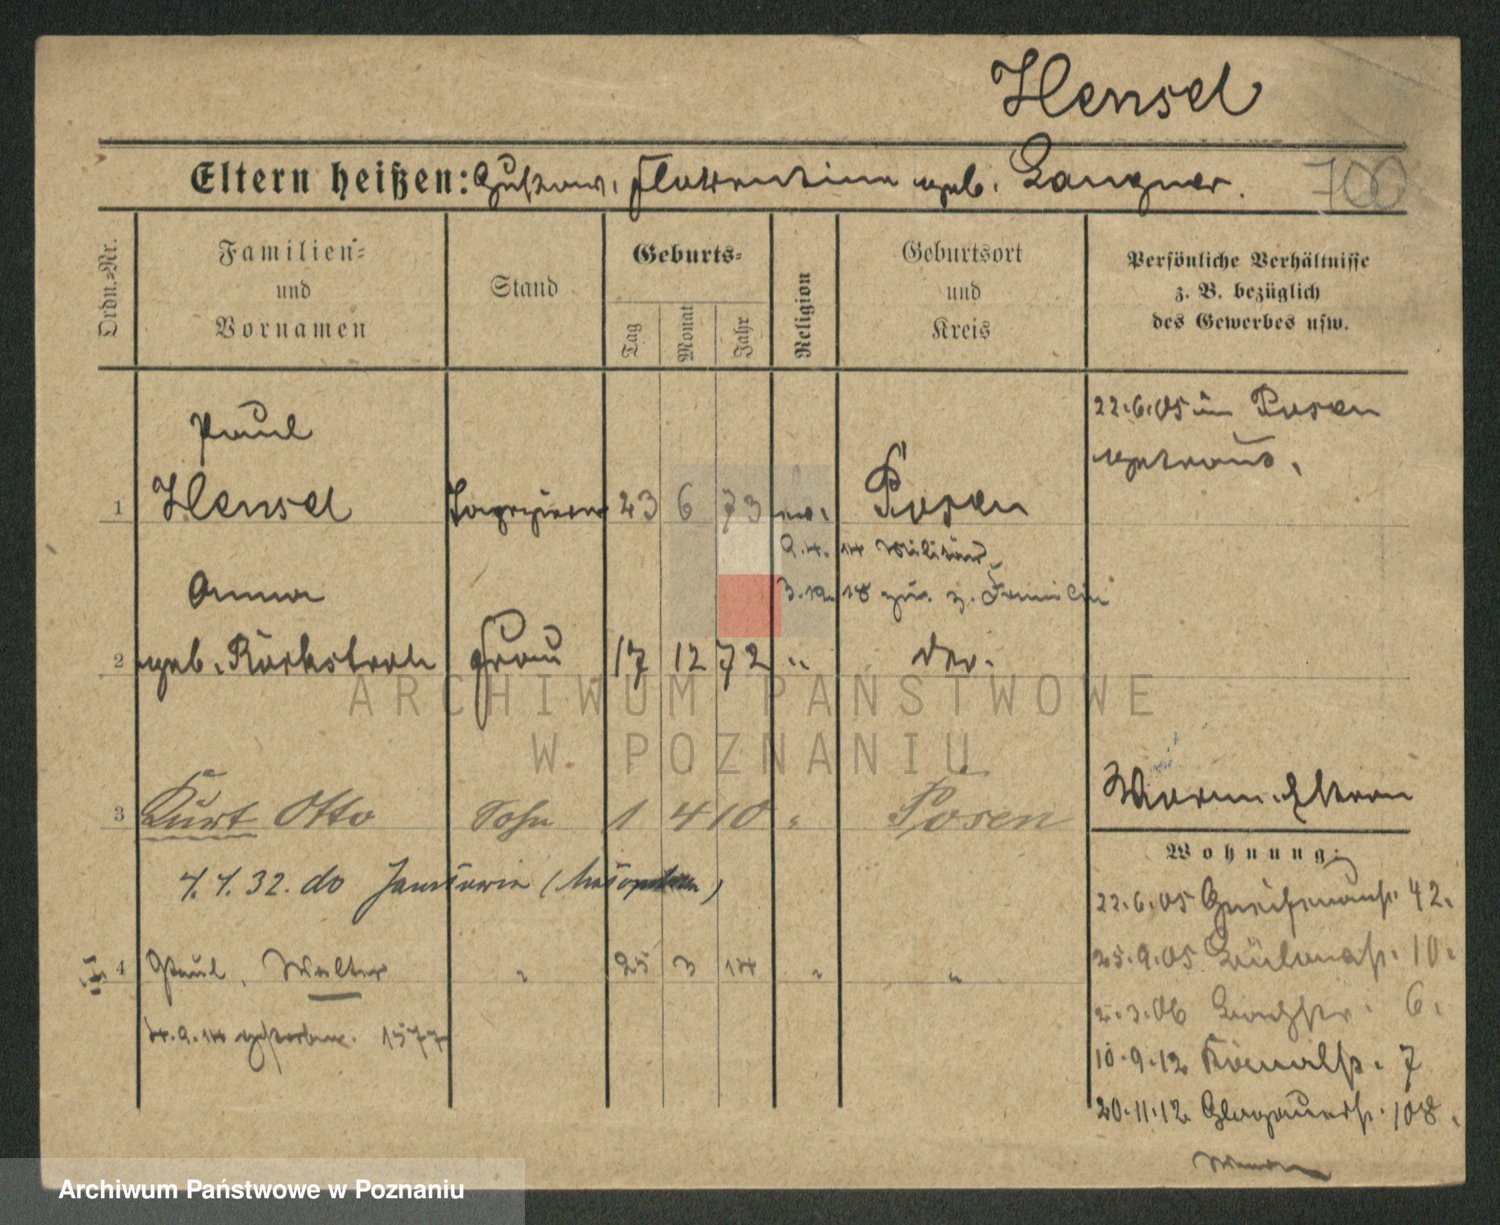 Hensel
Eltern heißen: Gustav, Florentine geb. Langner. 700
Ordn.-Nr.
Familien-
und
Vornamen
Stand
Geburts-
Tag
Monat
Jahr
Religion
Geburtsort
und
Kreis
Persönliche Verhältnisse
z. B. bezüglich
des Gewerbes usw.
22.6.05 in Posen
getraut.
Paul
1 Hensel Tapezierer 23 6 73 ev. Posen
9.4.14 Militär
3.12.18 zur. z. Familie
Anna
2 geb. Rörkstroh Frau 17 12 72 " do.
3 Kurt Otto Sohn 1 4 10 " Posen
32. do
4 Paul, Walter " 25 3 14 " "
9.14 gestorben. 1577
Eltern
Wohnung:
22.6.05 42.
25.9.05 10.
2.3.06 6.
10.9.12 7
20.11.12 Glogauerst. 108.
ARCHIWUM PAŃSTWOWE
W POZNANIU
Archiwum Państwowe w Poznaniu